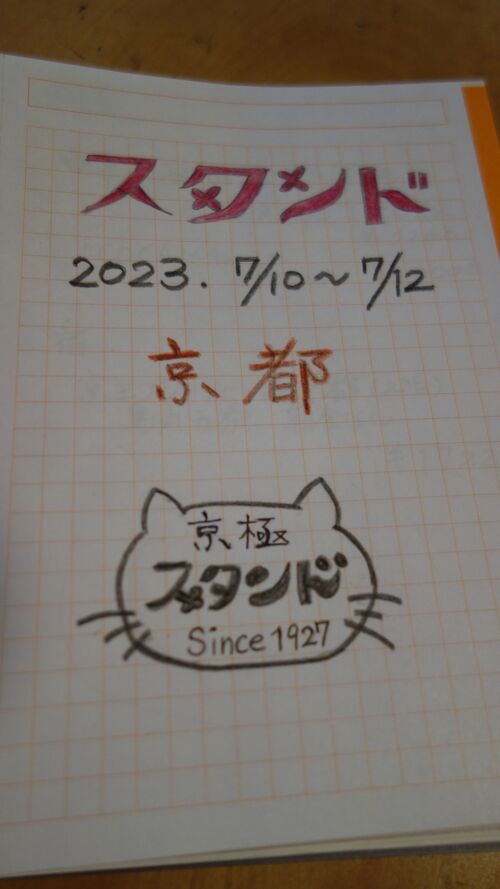 スタンド
2023. 7/10~7/12
京都
京極
スタンド
Since 1927